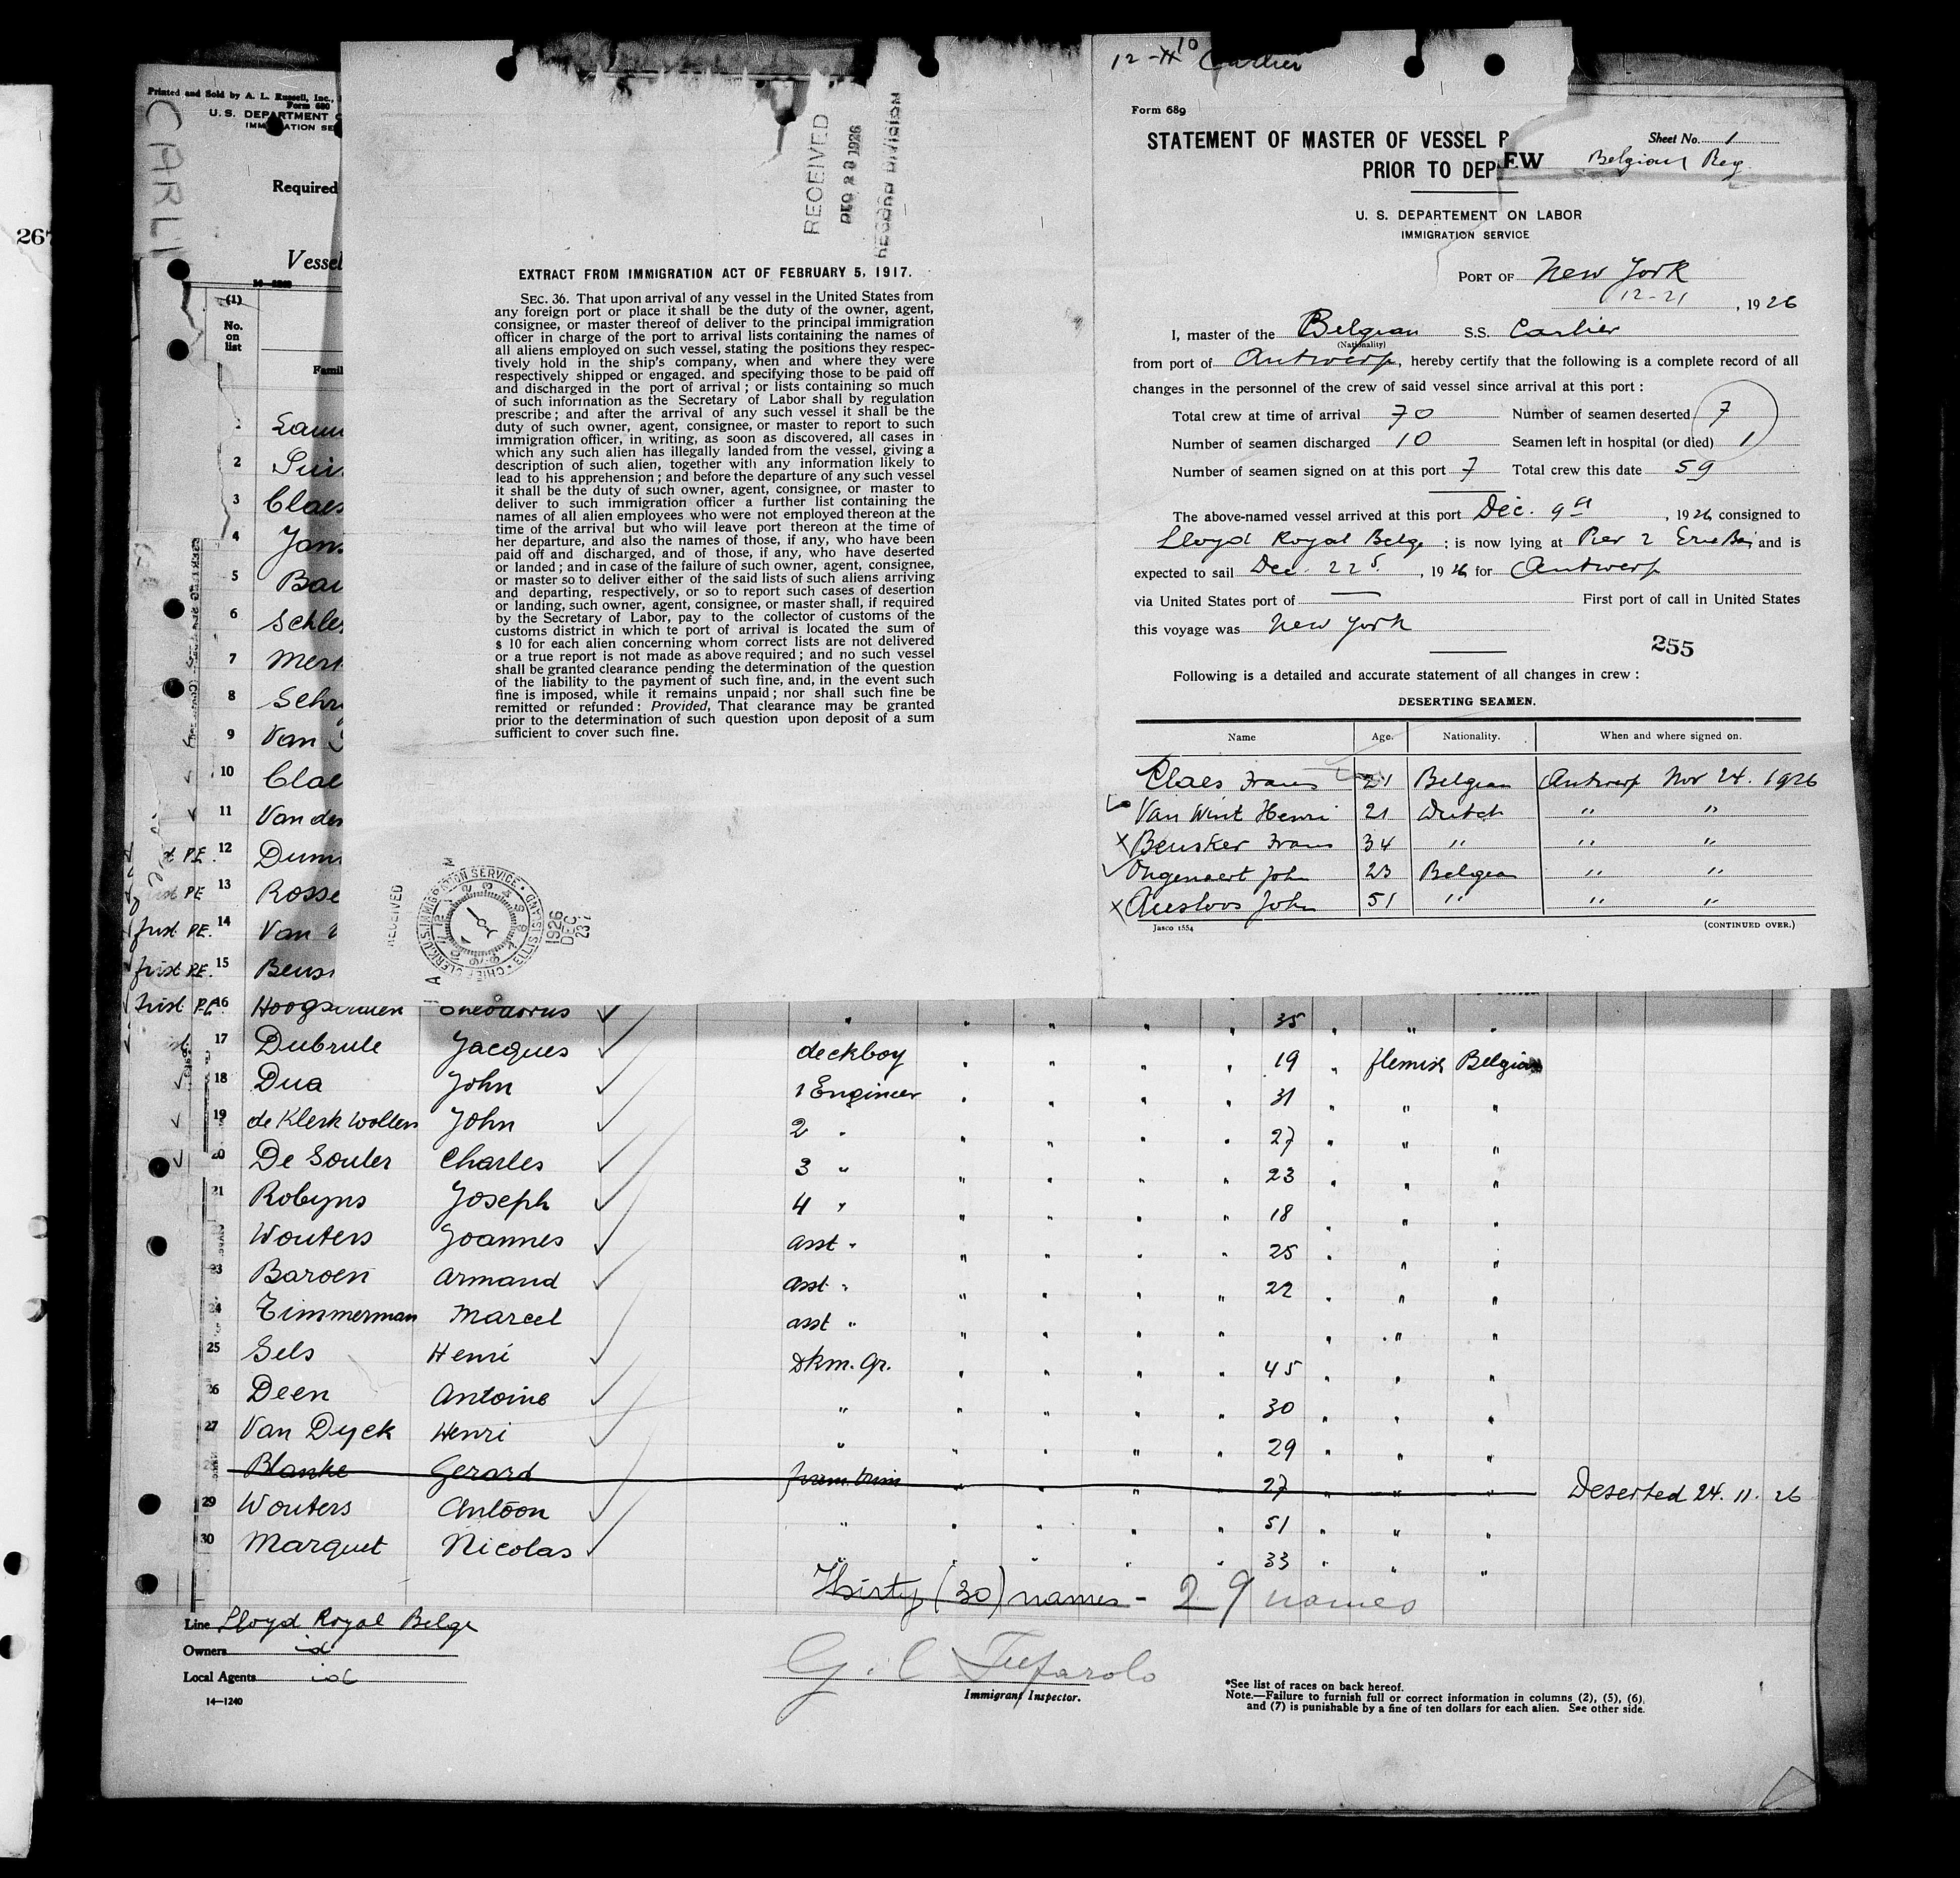 267
Printed and Sold by A. L. Russell, Inc.,
Form 680
U. S. DEPARTMENT
CARLI
Required
Vessel
14—1240
(1)
No.
on
list
Famil
2
3 Claes
4 Jans
5 Bau
6 Schles
7 Mert
8 Schr
9 Van
10 Clae
11 Van der
PE. 12 Dum
PE 13 Rosse
PE. 14 Van
PE. 15 Beus
RECEIVED
DEC 28 1926
RECORD DIVISION
EXTRACT FROM IMMIGRATION ACT OF FEBRUARY 5, 1917.
SEC. 36. That upon arrival of any vessel in the United States from
any foreign port or place it shall be the duty of the owner, agent,
consignee, or master thereof of deliver to the principal immigration
officer in charge of the port to arrival lists containing the names of
all aliens employed on such vessel, stating the positions they respec-
tively hold in the ship's company, when and where they were
respectively shipped or engaged. and specifying those to be paid off
and discharged in the port of arrival ; or lists containing so much
of such information as the Secretary of Labor shall by regulation
prescribe ; and after the arrival of any such vessel it shall be the
duty of such owner, agent, consignee, or master to report to such
immigration officer, in writing, as soon as discovered, all cases in
which any such alien has illegally landed from the vessel, giving a
description of such alien, together with any information likely to
lead to his apprehension ; and before the departure of any such vessel
it shall be the duty of such owner, agent, consignee, or master to
deliver to such immigration officer a further list containing the
names of all alien employees who were not employed thereon at the
time of the arrival but who will leave port thereon at the time of
her departure, and also the names of those, if any, who have been
paid off and discharged, and of those, if any, who have deserted
or landed ; and in case of the failure of such owner, agent, consignee,
or master so to deliver either of the said lists of such aliens arriving
and departing, respectively, or so to report such cases of desertion
or landing, such owner, agent, consignee, or master shall, if required
by the Secretary of Labor, pay to the collector of customs of the
customs district in which te port of arrival is located the sum of
$ 10 for each alien concerning whom correct lists are not delivered
or a true report is not made as above required ; and no such vessel
shall be granted clearance pending the determination of the question
of the liability to the payment of such fine, and, in the event such
fine is imposed, while it remains unpaid ; nor shall such fine be
remitted or refunded : Provided, That clearance may be granted
prior to the determination of such question upon deposit of a sum
sufficient to cover such fine.
RECEIVED
U.S. IMMIGRATION SERVICE • ELLIS ISLAND • CHIEF CLERK
1926
DEC
23
12 - 10 Carlier
Form 689
STATEMENT OF MASTER OF VESSEL
PRIOR TO DEP
EW
Sheet No. 1
Belgian Reg.
U. S. DEPARTEMENT ON LABOR
IMMIGRATION SERVICE
PORT OF New York
12-21, 1926
I, master of the Belgian S.S. Carlier
(Nationality)
from port of Antwerp, hereby certify that the following is a complete record of all
changes in the personnel of the crew of said vessel since arrival at this port :
Total crew at time of arrival 70 Number of seamen deserted 7
Number of seamen discharged 10 Seamen left in hospital (or died) 1
Number of seamen signed on at this port 7 Total crew this date 59
The above-named vessel arrived at this port Dec. 9th, 1926 consigned to
Lloyd Royal Belge ; is now lying at Pier 2 Erie Bas and is
expected to sail Dec. 22, 1926 for Antwerp
via United States port of — First port of call in United States
this voyage was New York
255
Following is a detailed and accurate statement of all changes in crew :
DESERTING SEAMEN.
Name Age. Nationality. When and where signed on.
Claes Frans 21 Belgian Antwerp Nov 24. 1926
Van Wint Henri 21 Dutch " "
x Beusker Frans 34 " " "
Ongenaert John 23 Belgian " "
x Ausloos John 51 " " "
Jasco 1554 (CONTINUED OVER.)
PE. 16 Hoogstraten " " " " " 35 " " "
17 Dubrule Jacques deckboy " " " " 19 " flemish Belgian
18 Dua John 1 Engineer " " " " 31 " " "
19 de Klerk Wolters John 2 " " " " " 27 " " "
20 De Souter Charles 3 " " " " " 23 " " "
21 Robyns Joseph 4 " " " " " 18 " " "
Wouters Joannes asst " " " " " 25 " " "
23 Baroen Armand asst. " " " " " 22 " " "
24 Timmerman Marcel asst " " " " " " " "
25 Gels Henri Dkm. Gr. " " " " 45 " " "
26 Deen Antoine " " " " " 30 " " "
27 Van Dyck Henri " " " " " 29 " " "
28 Blanke Gerard " " " " 27 " " " Deserted 24. 11. 26
29 Wouters Antoon " " " " " 51 " " "
30 Marquet Nicolas " " " " " 33 " " "
Thirty (30) names - 29 names
Line Lloyd Royal Belge
Owners id
Local Agents id
14—1240
G. C. Tufarolo
Immigrant Inspector.
*See list of races on back hereof.
Note.—Failure to furnish full or correct information in columns (2), (5), (6)
and (7) is punishable by a fine of ten dollars for each alien. See other side.